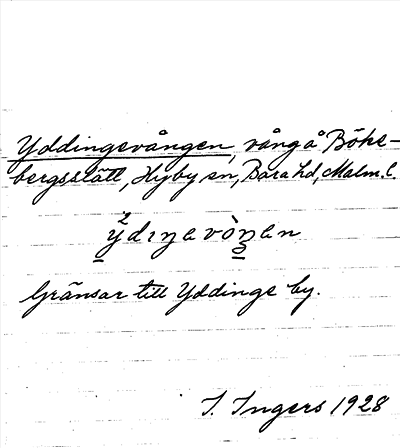 Yddingevången, vång å Böke-
bergsslätt, Hyby sn, Bara hd, Malm. l.
Gränsar till Yddinge by.
I. Ingers 1928